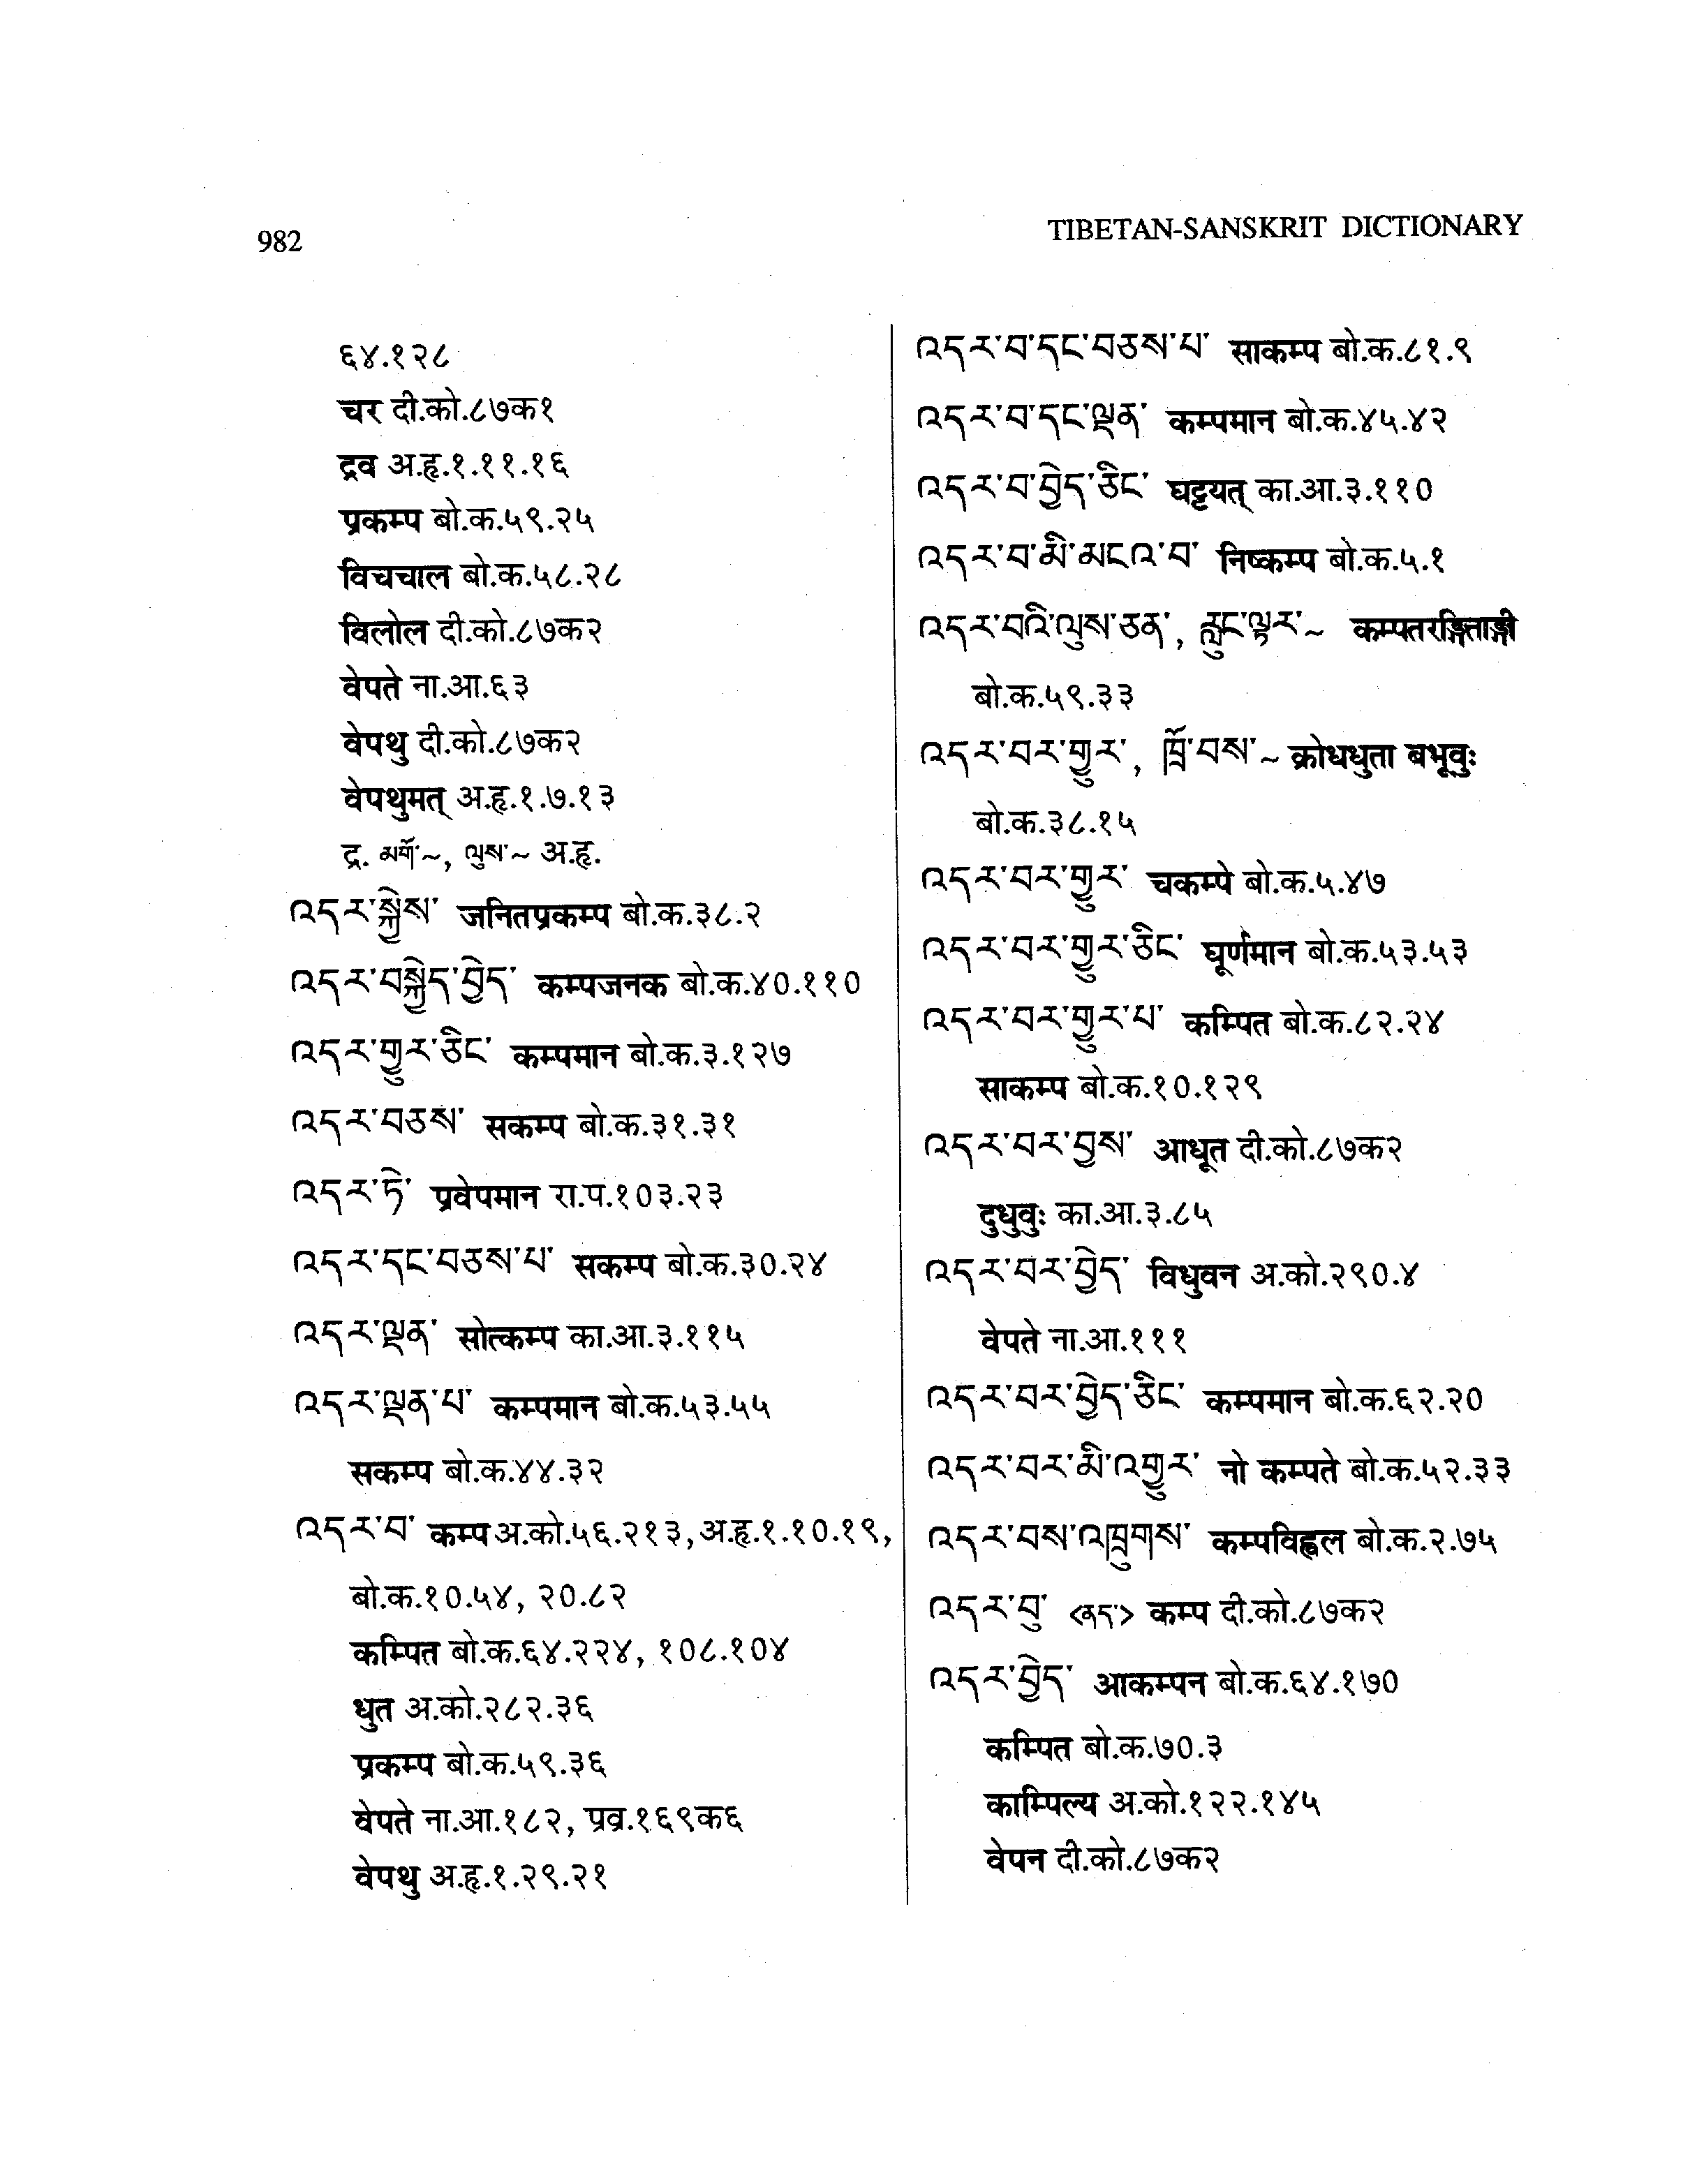 982
TIBETAN-SANSKRIT DICTIONARY
६४.१२८
चर दी.को.८७क१
द्रव अ.हृ.१.११.१६
प्रकम्प बो.क.५९.२५
विचचाल बो.क.५८.२८
विलोल दी.को.८७क२
वेपते ना.आ.६३
वेपथु दी.को.८७क२
वेपथुमत् अ.हृ.१.७.१३
द्र. མགོ་~, ལུས་~ अ.हृ.
འདར་སྐྱེས་ जनितप्रकम्प बो.क.३८.२
འདར་བསྐྱེད་བྱེད་ कम्पजनक बो.क.४०.११०
འདར་གྱུར་ཅིང་ कम्पमान बो.क.३.१२७
འདར་བཅས་ सकम्प बो.क.३१.३१
འདར་ཏེ་ प्रवेपमान रा.प.१०३.२३
འདར་དང་བཅས་པ་ सकम्प बो.क.३०.२४
འདར་ལྡན་ सोत्कम्प का.आ.३.११५
འདར་ལྡན་པ་ कम्पमान बो.क.५३.५५
सकम्प बो.क.४४.३२
འདར་བ་ कम्प अ.को.५६.२१३, अ.हृ.१.१०.१९,
बो.क.१०.५४, २०.८२
कम्पित बो.क.६४.२२४, १०८.१०४
धुत अ.को.२८२.३६
प्रकम्प बो.क.५९.३६
वेपते ना.आ.१८२, प्रव्र.१६९क६
वेपथु अ.हृ.१.२९.२१
འདར་བ་དང་བཅས་པ་ साकम्प बो.क.८१.९
འདར་བ་དང་ལྡན་ कम्पमान बो.क.४५.४२
འདར་བ་བྱེད་ཅིང་ घट्टयत् का.आ.३.११०
འདར་བ་མི་མངའ་བ་ निष्कम्प बो.क.५.१
འདར་བའི་ལུས་ཅན་, རླུང་ལྟར་~ कम्पतरङ्गिताङ्गी
बो.क.५९.३३
འདར་བར་གྱུར་, ཁྲོ་བས་~ क्रोधधुता बभूवुः
बो.क.३८.१५
འདར་བར་གྱུར་ चकम्पे बो.क.५.४७
འདར་བར་གྱུར་ཅིང་ घूर्णमान बो.क.५३.५३
འདར་བར་གྱུར་པ་ कम्पित बो.क.८२.२४
साकम्प बो.क.१०.१२९
འདར་བར་བྱས་ आधूत दी.को.८७क२
दुधुवुः का.आ.३.८५
འདར་བར་བྱེད་ विधुवन अ.को.२९०.४
वेपते ना.आ.१११
འདར་བར་བྱེད་ཅིང་ कम्पमान बो.क.६२.२०
འདར་བར་མི་འགྱུར་ नो कम्पते बो.क.५२.३३
འདར་བས་འཁྲུགས་ कम्पविह्वल बो.क.२.७५
འདར་བུ་ <ནད་> कम्प दी.को.८७क२
འདར་བྱེད་ आकम्पन बो.क.६४.१७०
कम्पित बो.क.७०.३
काम्पिल्य अ.को.१२२.१४५
वेपन दी.को.८७क२